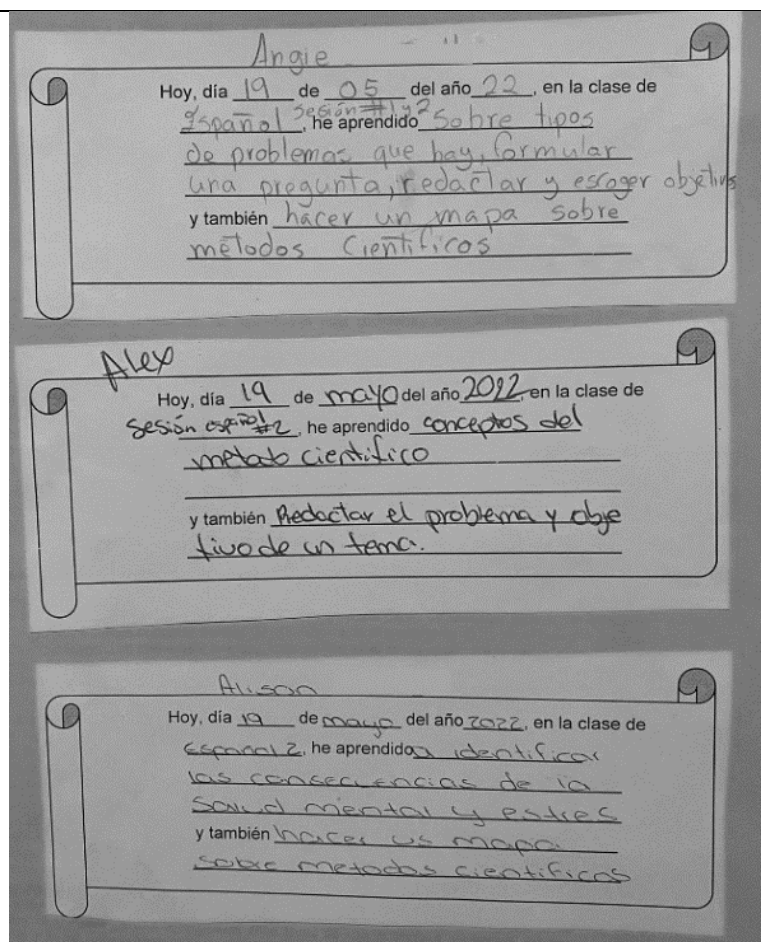 Angie
Hoy, día 19 de 05 del año 22, en la clase de
Español Sesión #1 y 2, he aprendido Sobre tipos
de problemas que hay, formular
una pregunta, redactar y escoger objetivos
y también hacer un mapa sobre
métodos Científicos
Alex
Hoy, día 19 de mayo del año 2022, en la clase de
Sesión español #2, he aprendido conceptos del
metodo cientifico
y también Redactar el problema y obje
tivo de un tema.
Alison
Hoy, día 19 de mayo del año 2022, en la clase de
Español 2, he aprendido a identificar
las consecuencias de la
Salud mental y estres
y también hacer us mapa
sobre metodos cientificos